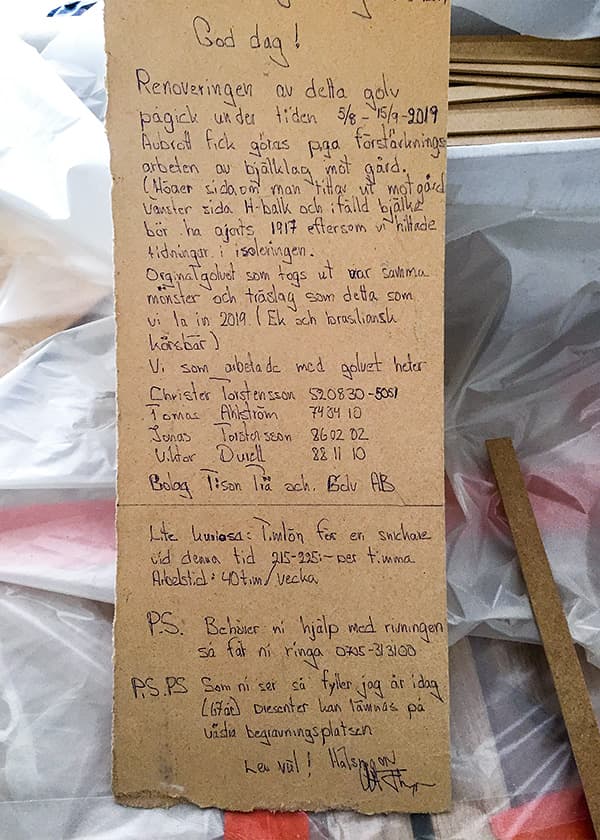 God dag!
Renoveringen av detta golv
pågick under tiden 5/8 - 15/9-2019
Avbrott fick göras pga förstärknings
arbeten av bjälklag mot gård.
(Höger sida om man tittar ut mot gård
Vänster sida H-balk och ifälld bjälke
bör ha gjorts 1917 eftersom vi hittade
tidningar i isoleringen.
Orginalgolvet som togs ut var samma
mönster och träslag som detta som
vi la in 2019. (Ek och brasiliansk
körsbär)
Vi som arbetade med golvet heter
Christer Torstensson 520830-5051
Tomas Ahlström 74 10
Jonas Torstensson 86 02 02
Viktor 88 11 10
Bolag Tison Trä och. Golv AB
Lite kuriosa: Timlön för en snickare
vid denna tid 215-225:- per timma
Arbetstid: 40 tim/vecka
P.S. Behöver ni hjälp med rivningen
så får ni ringa 0705-313100
P.S.PS Som ni ser så fyller jag år idag
(67år) Presenter kan lämnas på
västra begravningsplatsen
Lev väl! Hälsningar